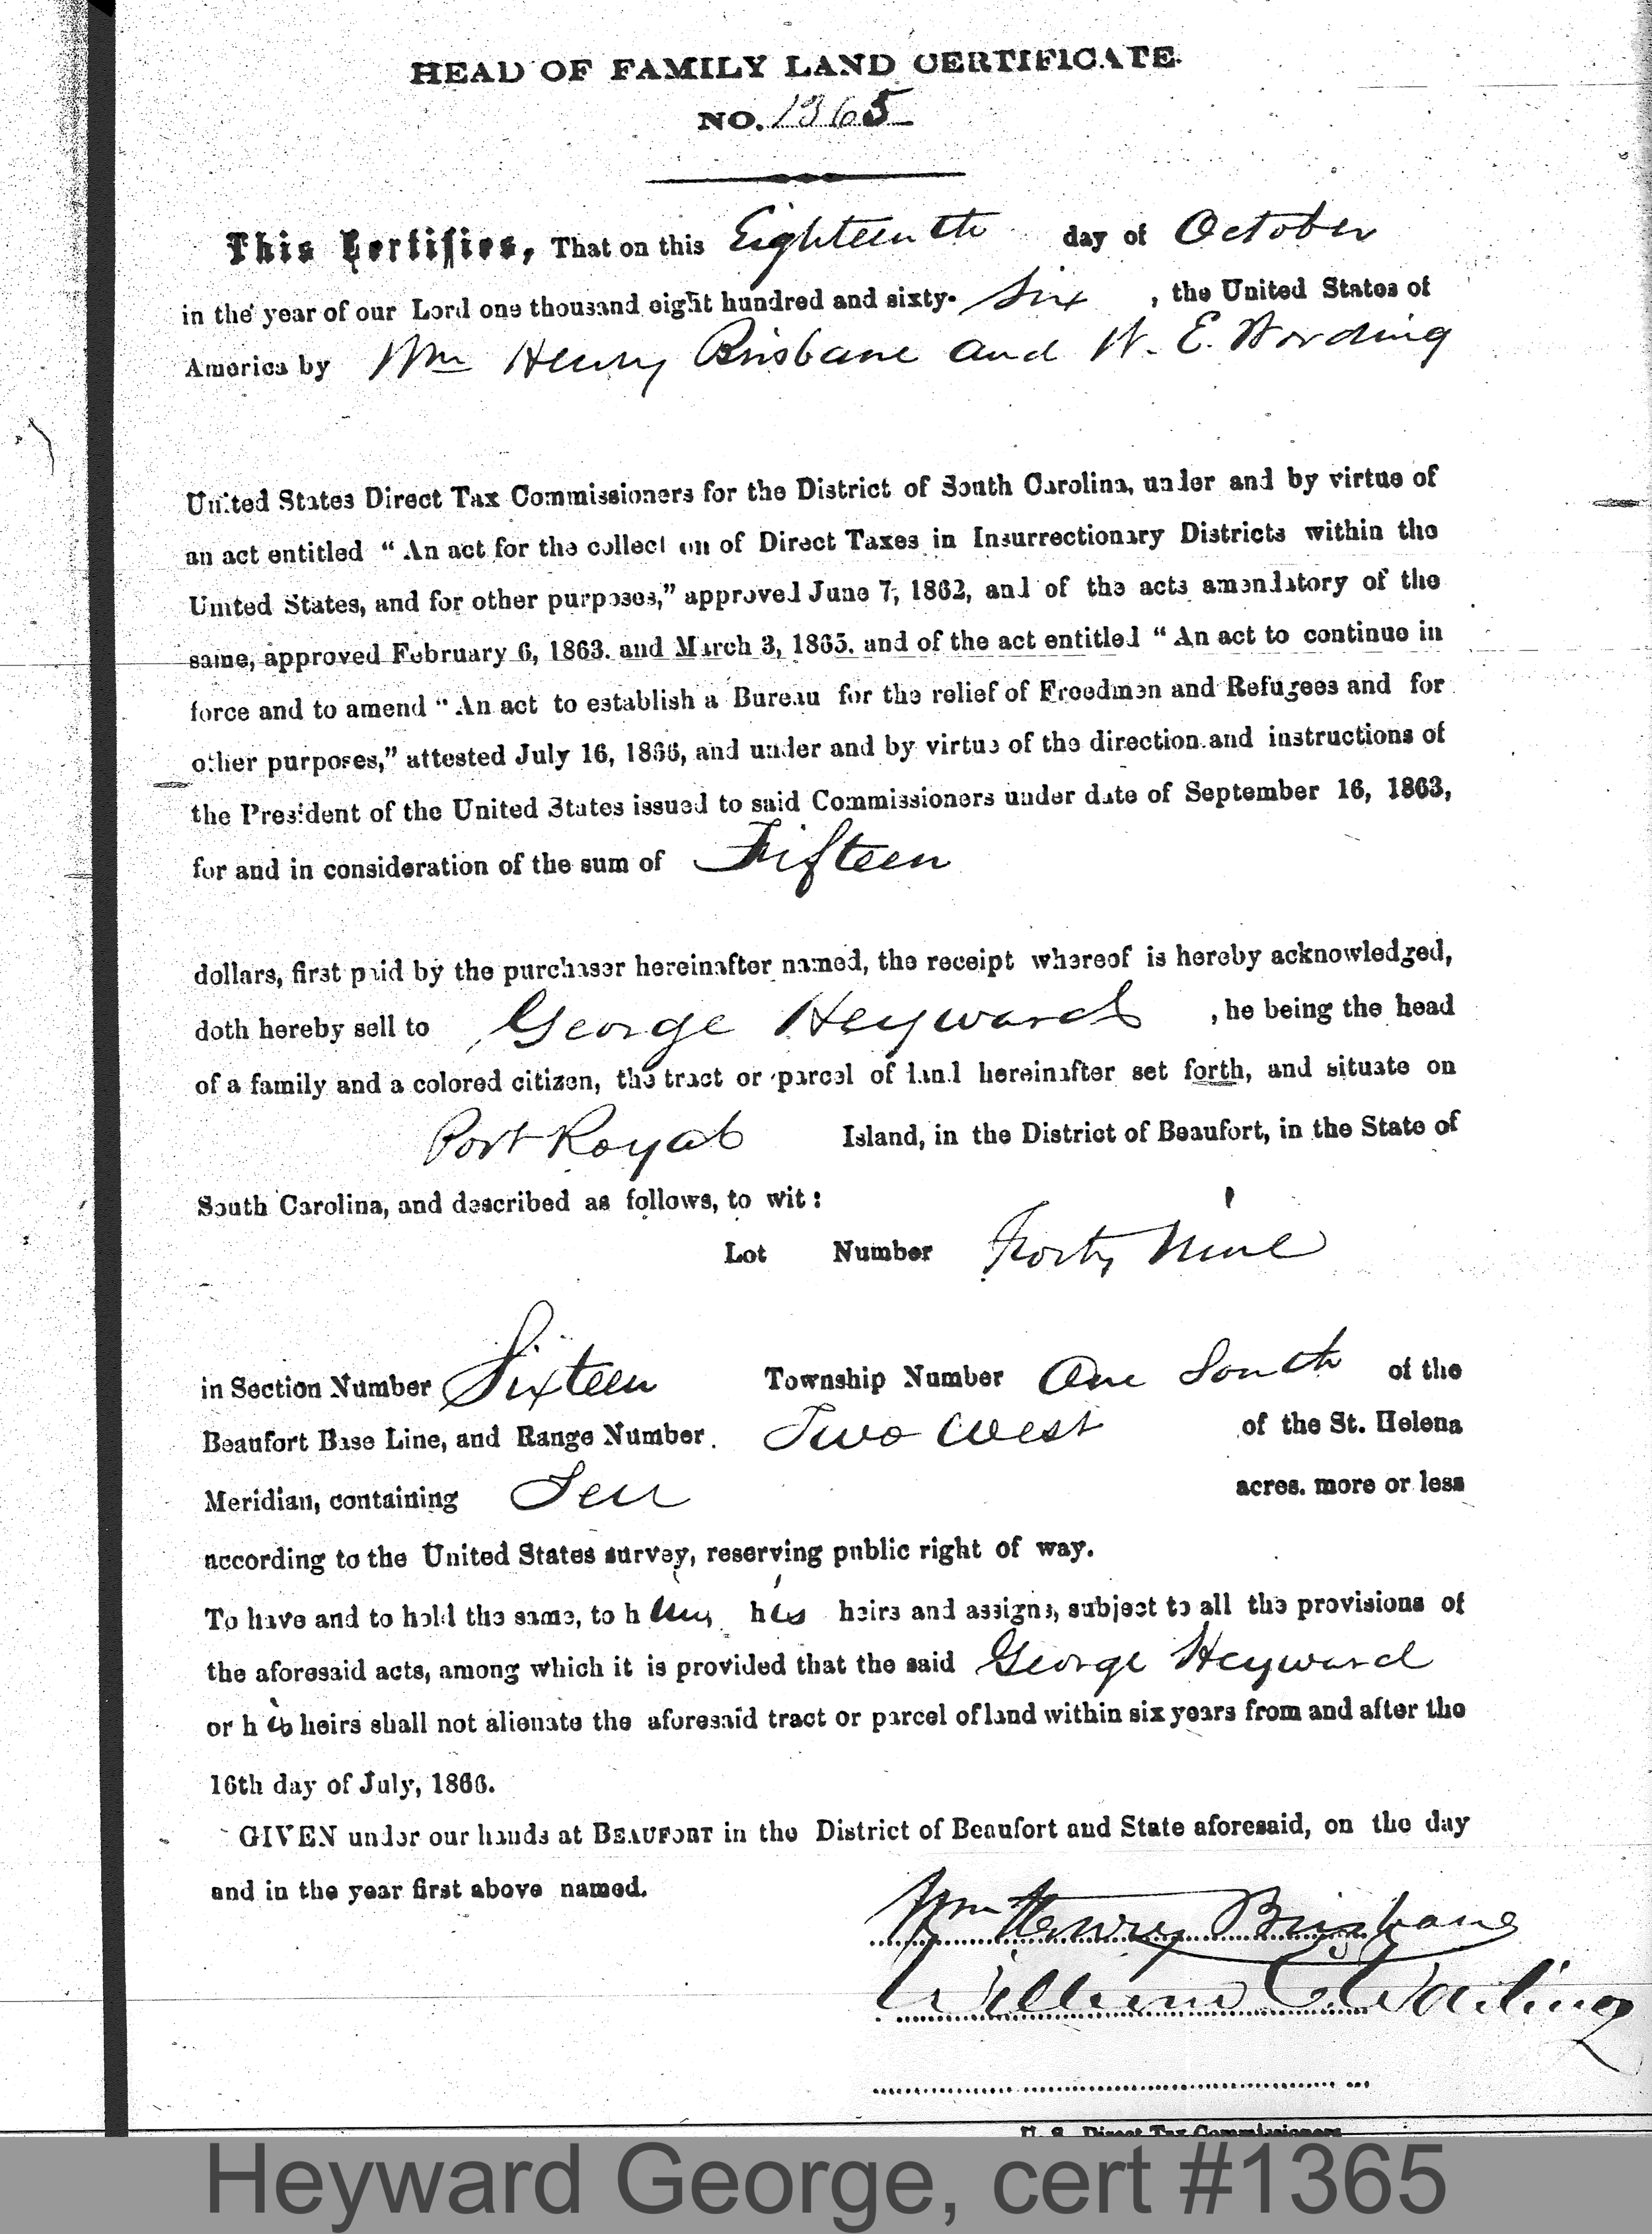 HEAD OF FAMILY LAND CERTIFICATE.
NO. 1365
This Certifies, That on this Eighteenth day of October
in the year of our Lord one thousand eight hundred and sixty- Six , the United States of
America by Wm Henry Brisbane and W. E. Wording
United States Direct Tax Commissioners for the District of South Carolina, under and by virtue of
an act entitled “An act for the collection of Direct Taxes in Insurrectionary Districts within the
United States, and for other purposes,” approved June 7, 1862, and of the acts amendatory of the
same, approved February 6, 1863. and March 3, 1865. and of the act entitled “An act to continue in
force and to amend “An act to establish a Bureau for the relief of Freedmen and Refugees and for
other purposes,” attested July 16, 1866, and under and by virtue of the direction and instructions of
the President of the United States issued to said Commissioners under date of September 16, 1863,
for and in consideration of the sum of Fifteen
dollars, first paid by the purchaser hereinafter named, the receipt whereof is hereby acknowledged,
doth hereby sell to George Heyward , he being the head
of a family and a colored citizen, the tract or parcel of land hereinafter set forth, and situate on
Port Royal Island, in the District of Beaufort, in the State of
South Carolina, and described as follows, to wit:
Lot Number Forty Nine
in Section Number Sixteen Township Number One South of the
Beaufort Base Line, and Range Number Two West of the St. Helena
Meridian, containing Ten acres. more or less
according to the United States survey, reserving public right of way.
To have and to hold the same, to him, his heirs and assigns, subject to all the provisions of
the aforesaid acts, among which it is provided that the said George Heyward
or his heirs shall not alienate the aforesaid tract or parcel of land within six years from and after the
16th day of July, 1866.
GIVEN under our hands at BEAUFORT in the District of Beaufort and State aforesaid, on the day
and in the year first above named.
Wm Henry Brisbane
William E Wording
U. S. Direct Tax Commissioners
Heyward George, cert #1365